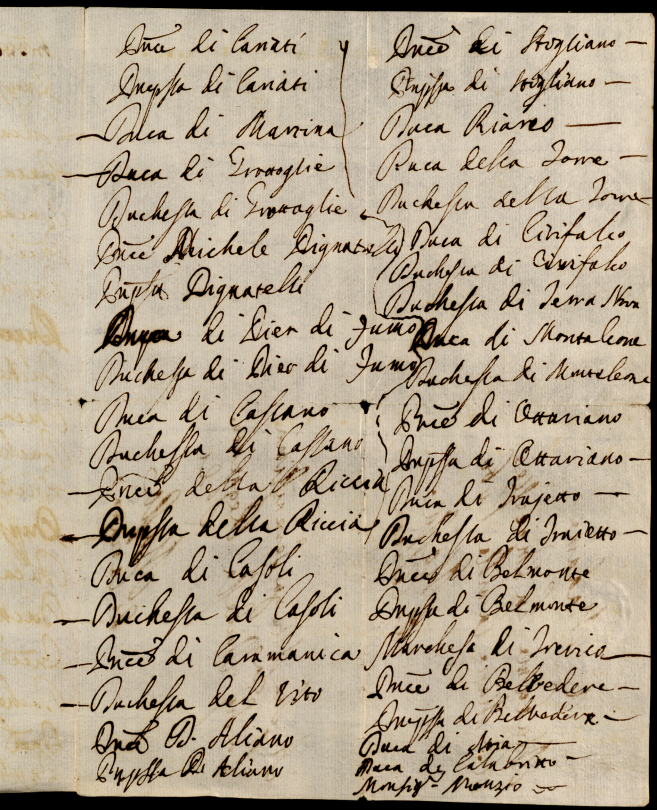 Pnce di Cariati
Pnpssa di Cariati
Duca di Martina
Duca di Grottaglie
Duchessa di Grottaglie
Pnce Michele Pignatelli
Pnpssa Pignatelli
di Pier di Fumo
Duchessa di Pier di Fumo
Duca di Cassano
Duchessa di Cassano
Pnce della Riccia
Pnpssa della Riccia
Duca di Casoli
Duchessa di Casoli
Pnce di Caramanica
Duchessa del Vito
Pnce D. Aliano
Pnpssa Di Aliano
Pnce di Stigliano
Pnpssa di Stigliano
Duca Riario
Duca della Torre
Duchessa della Torre
Duca di Cirifalco
Duchessa di Cirifalco
Duchessa di Terra Nova
Duca di Montaleone
Duchessa di Montaleone
Pnce di Ottaviano
Pnpssa di Ottaviano
Duca di Trajetto
Duchessa di Traietto
Pnce di Belmonte
Pnpssa di Belmonte
Marchesa di Trevico
Pnce di Belvedere
Pnpssa di Belvedere
Duca di Noia
Duca di Calabritto
Monsigr.